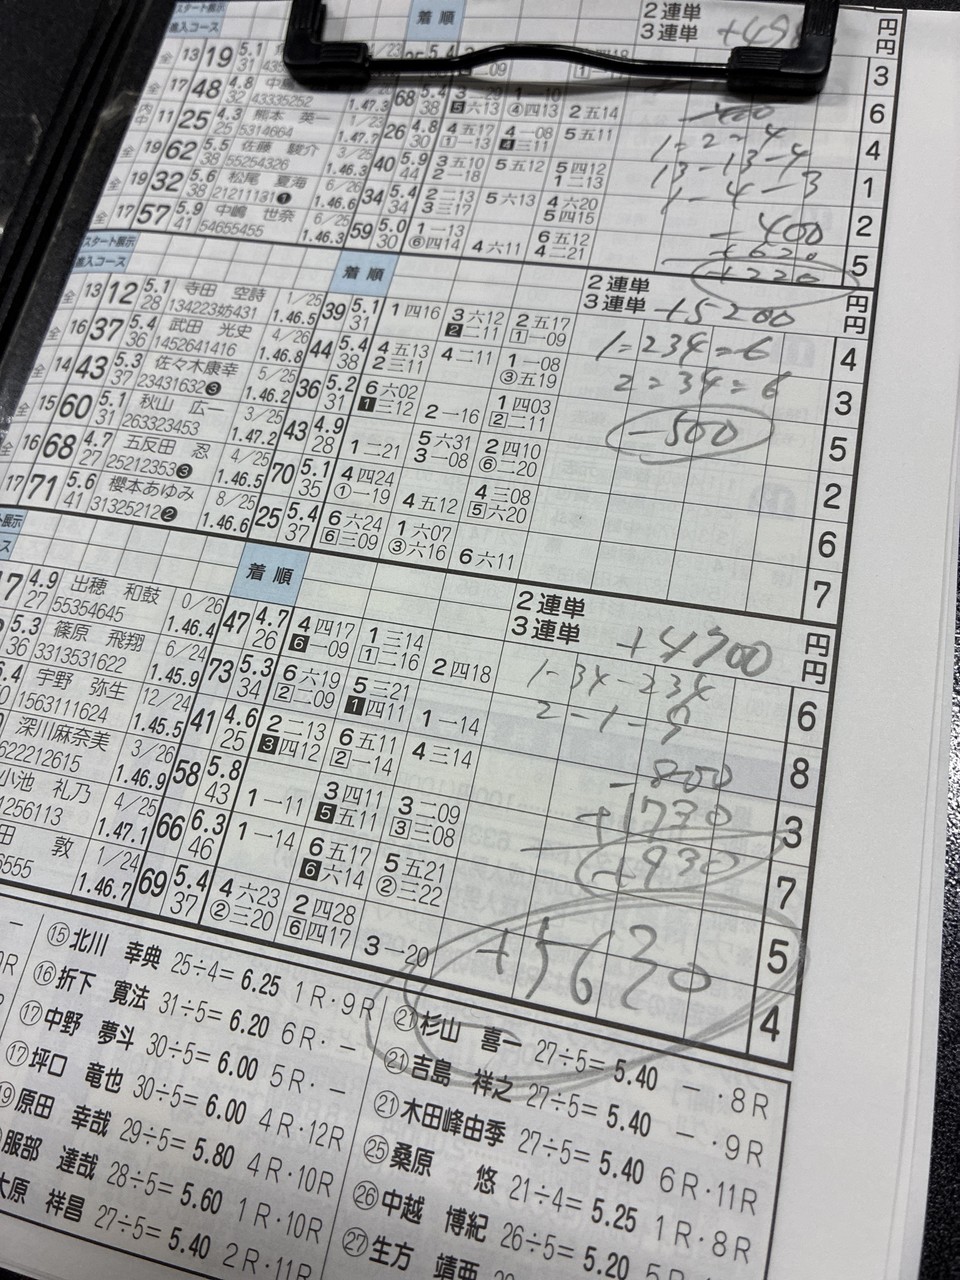 スタート展示
進入コース
着順
2連単
3連単
円
円
全 13 19 5.1 31
3
全 17 48 4.8 32 43335252 1.47.3 68 5.4 38 5 六13 ④四13 2五14
6
内中 11 25 4.3 25 熊本 英一 5314664 1/23 1.47.7 26 4.8 30 4五17 1一13 4一08 4三11 5五11
1=2=4
4
全 19 62 5.5 38 佐藤 駿介 55254326 3/25 1.46.3 40 5.9 44 3五10 2一18 5五12 5四12 1二13
13-13-4
1
全 19 32 5.6 38 松尾 夏海 21211131❶ 6/26 1.46.6 34 5.4 34 2二13 3三17 5六13 4六20 5四15
1-4-3
2
全 17 57 5.9 41 中嶋 世奈 54655455 6/25 1.46.3 59 5.0 30 1一13 ⑥四14 4六11 6五12 4二21
-400
+620
+220
5
スタート展示
進入コース
着順
2連単
3連単
+5200
円
円
全 13 12 5.1 28 寺田 空詩 134223妨431 1/25 1.46.5 39 5.1 31 1四16 3六12 2二11 2五17 1一09
1=234=6
4
全 16 37 5.4 36 武田 光史 1452641416 4/26 1.46.8 44 5.4 38 4五13 2三11 4二11 1一08 ③五19
2=34=6
3
全 14 43 5.3 37 佐々木康幸 23431632❸ 5/25 1.46.2 36 5.2 31 6六02 1三12 2一16 1四03 2二11
-500
5
全 15 60 5.1 31 秋山 広一 263323453 3/25 1.47.2 43 4.9 28 1二21 5六31 3一08 2四10 ⑥二20
2
全 16 68 4.7 27 五反田 忍 25212353❸ 4/25 1.46.5 70 5.1 35 4四24 ①一19 4五12 4三08 5六20
6
17 71 5.6 41 櫻本あゆみ 31325212❷ 8/25 1.46.6 25 5.4 37 6六24 6三09 1六07 ③六16 6六11
7
着順
2連単
3連単
+4700
円
円
17 4.9 27 出穂 和鼓 55354645 0/26 1.46.4 47 4.7 26 4四17 6一09 1三14 1二16 2四18
1-34-234
6
5.3 36 篠原 飛翔 3313531622 6/24 1.45.9 73 5.3 34 6六19 2二09 5三21 1四11 1一14
8
宇野 弥生 1563111624 12/24 1.45.5 41 4.6 25 2二13 3四12 6五11 2一14 4三14
-800
+1730
3
深川麻奈美 62212615 3/26 1.46.9 58 5.8 43 1一11 3四11 5五11 3二09 3三08
+930
7
小池 礼乃 1256113 4/25 1.47.1 66 6.3 46 1一14 6五17 6六14 5五21 ②三22
5
田 敦 5555 1/24 1.46.7 69 5.4 37 4六23 ②三20 2四28 6四17 3一20
+5630
4
⑮北川 幸典 25÷4=6.25 1R・9R
⑯折下 寛法 31÷5=6.20 6R・―
⑰中野 夢斗 30÷5=6.00 5R・―
⑰坪口 竜也 30÷5=6.00 4R・12R
原田 幸哉 29÷5=5.80 4R・10R
服部 達哉 28÷5=5.60 1R・10R
大原 祥昌 27÷5=5.40 2R・11R
㉑杉山 喜一 27÷5=5.40 ―・8R
㉑吉島 祥之 27÷5=5.40 ―・9R
㉑木田峰由季 27÷5=5.40 6R・11R
㉕桑原 悠 21÷4=5.25 1R・8R
㉖中越 博紀 26÷5=5.20
㉗生方 靖亜